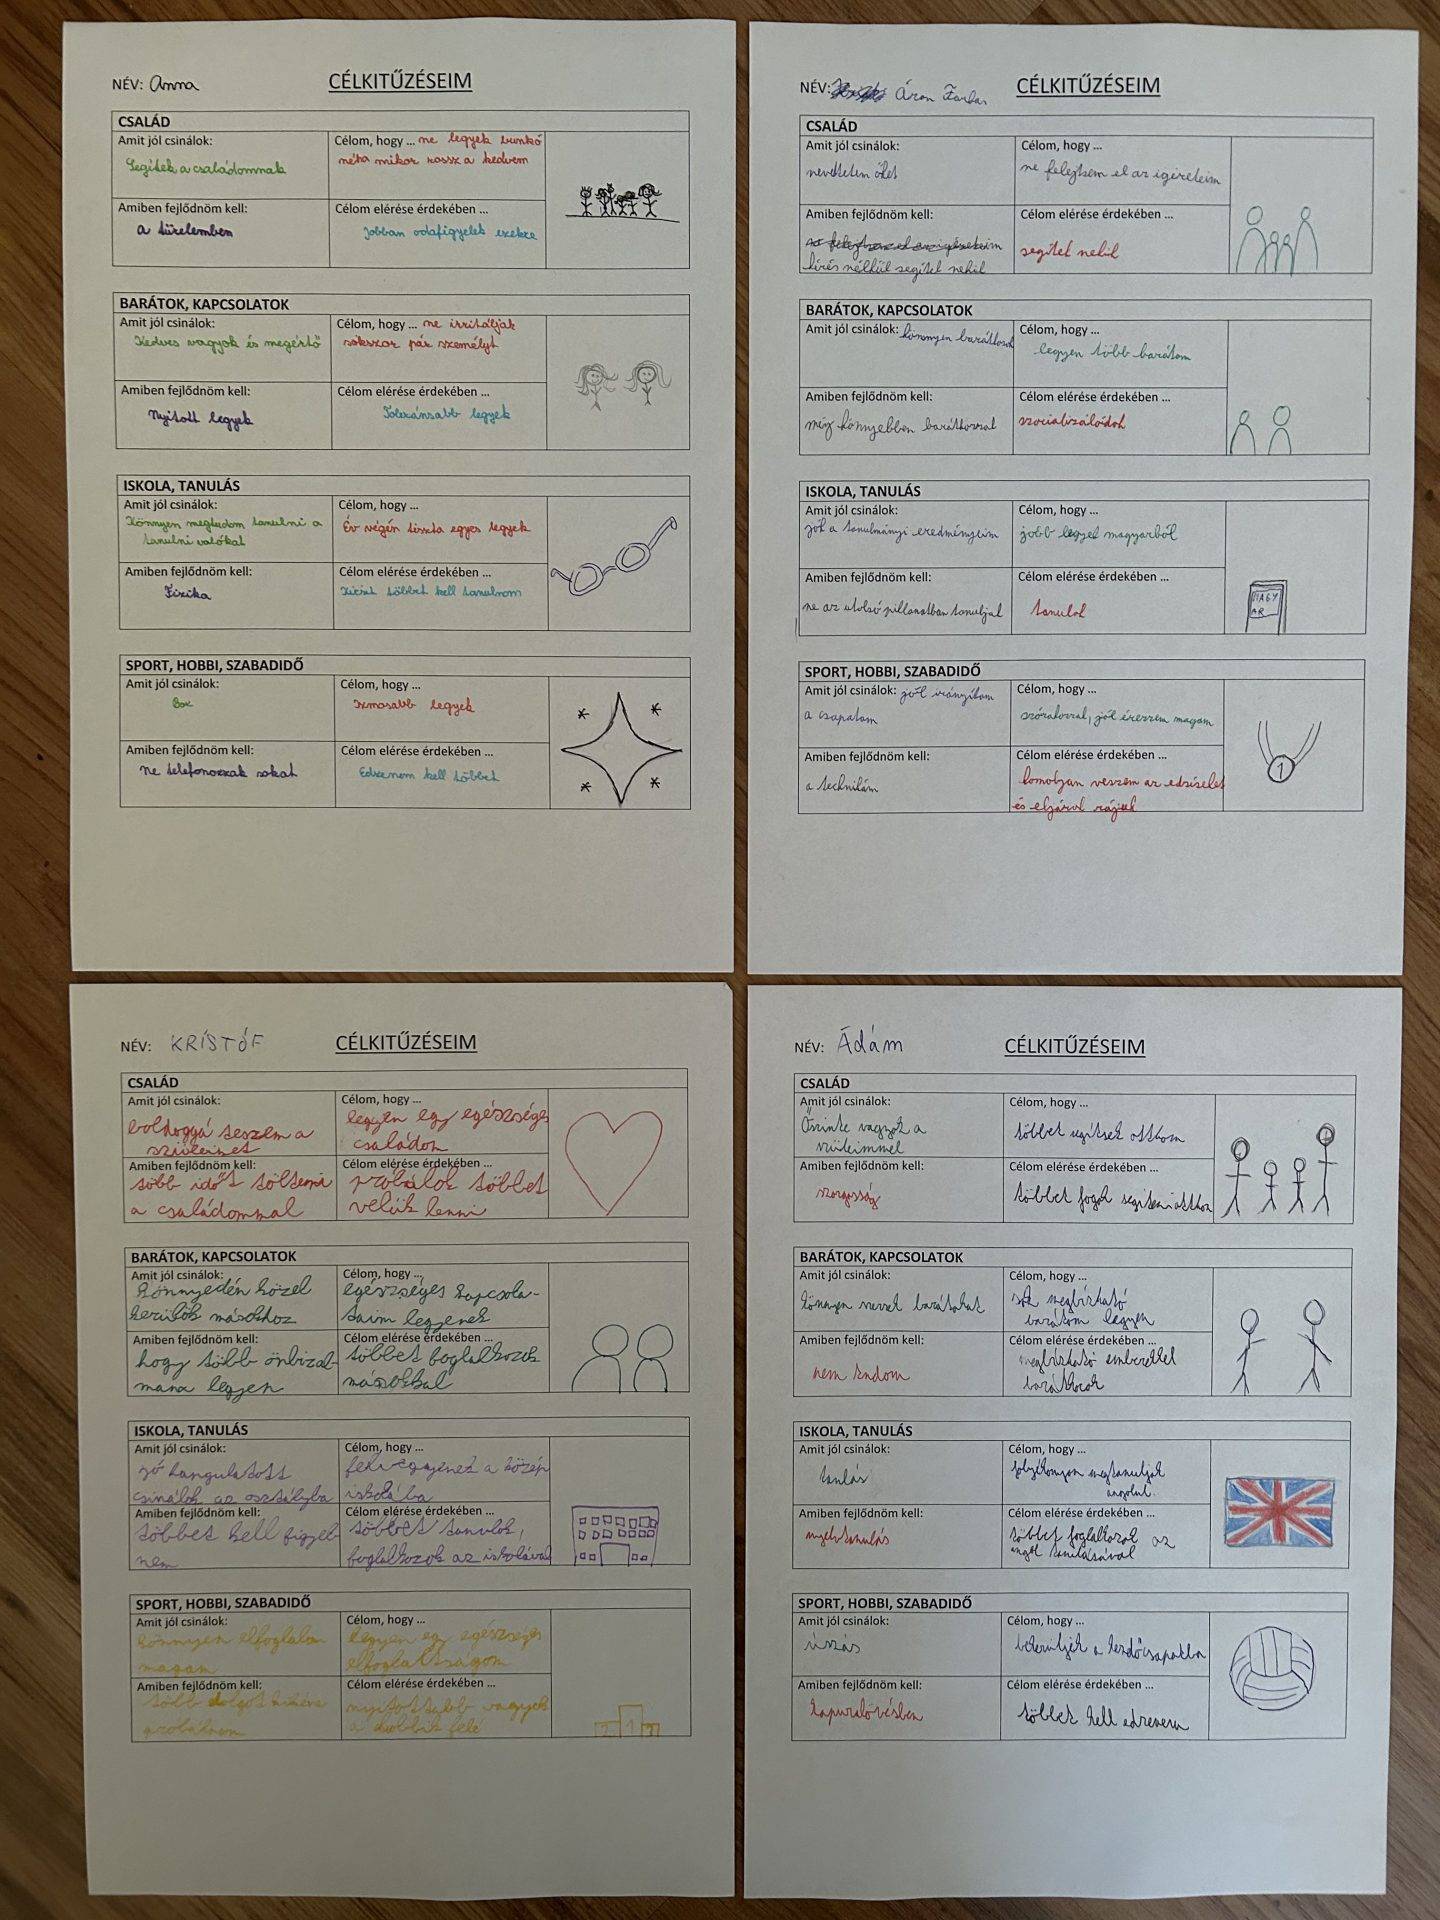 NÉV: Anna
CÉLKITŰZÉSEIM
CSALÁD
Amit jól csinálok:
Segítek a családomnak
Célom, hogy ... ne legyek bunkó
néha mikor rossz a kedvem
Amiben fejlődnöm kell:
a türelemben
Célom elérése érdekében ...
Jobban odafigyelek ezekre
BARÁTOK, KAPCSOLATOK
Amit jól csinálok:
Kedves vagyok és megértő
Célom, hogy ... ne irritáljak
sokszor pár személyt
Amiben fejlődnöm kell:
Nyitott legyek
Célom elérése érdekében ...
Toleránsabb legyek
ISKOLA, TANULÁS
Amit jól csinálok:
Könnyen megtudom tanulni a
tanulni valókat
Célom, hogy ...
Év végén tiszta egyes legyek
Amiben fejlődnöm kell:
Fizika
Célom elérése érdekében ...
Kicsit többet kell tanulnom
SPORT, HOBBI, SZABADIDŐ
Amit jól csinálok:
Box
Célom, hogy ...
Izmosabb legyek
Amiben fejlődnöm kell:
Ne telefonozzak sokat
Célom elérése érdekében ...
Edzenem kell többet
NÉV: Áron
CÉLKITŰZÉSEIM
CSALÁD
Amit jól csinálok:
nevettetem őket
Célom, hogy ...
ne felejtsem el az igéreteim
Amiben fejlődnöm kell:
kérés nélkül segítek nekik
Célom elérése érdekében ...
segítek nekik
BARÁTOK, KAPCSOLATOK
Amit jól csinálok: könnyen barátkozok
Célom, hogy ...
legyen több barátom
Amiben fejlődnöm kell:
még könnyebben barátkozzak
Célom elérése érdekében ...
szocializálódok
ISKOLA, TANULÁS
Amit jól csinálok:
jók a tanulmányi eredményeim
Célom, hogy ...
jobb legyek magyarból
Amiben fejlődnöm kell:
ne az utolsó pillanatban tanuljak
Célom elérése érdekében ...
tanulok
MAGY
AR
SPORT, HOBBI, SZABADIDŐ
Amit jól csinálok: jól irányítom
a csapatom
Célom, hogy ...
szórakozzak, jól érezzem magam
Amiben fejlődnöm kell:
a technikám
Célom elérése érdekében ...
komolyan veszem az edzéseket
és eljárok rájuk
1
NÉV: KRISTÓF
CÉLKITŰZÉSEIM
CSALÁD
Amit jól csinálok:
boldoggá teszem a
szüleimet
Célom, hogy ...
legyen egy egészséges
családom
Amiben fejlődnöm kell:
több időt töltenni
a családommal
Célom elérése érdekében ...
próbálok többet
velük lenni
BARÁTOK, KAPCSOLATOK
Amit jól csinálok:
könnyedén közel
kerülök másokhoz
Célom, hogy ...
egészséges kapcsola-
taim legyenek
Amiben fejlődnöm kell:
hogy több önbizal-
mam legyen
Célom elérése érdekében ...
többet foglalkozok
másokkal
ISKOLA, TANULÁS
Amit jól csinálok:
jó hangulatott
csinálok az osztályba
Célom, hogy ...
felvegyenek a közép
iskolába
Amiben fejlődnöm kell:
többet kell figyel
nem
Célom elérése érdekében ...
többet tanulok,
foglalkozok az iskolával
SPORT, HOBBI, SZABADIDŐ
Amit jól csinálok:
könnyen elfoglalom
magam
Célom, hogy ...
legyen egy egészséges
elfoglaltságom
Amiben fejlődnöm kell:
több dolgot kikéne
próbálnom
Célom elérése érdekében ...
nyitottabb vagyok
a dolgok felé
2 1 3
NÉV: Ádám
CÉLKITŰZÉSEIM
CSALÁD
Amit jól csinálok:
Őszinte vagyok a
szüleimmel
Célom, hogy ...
többet segítsek otthon
Amiben fejlődnöm kell:
szorgosság
Célom elérése érdekében ...
többet fogok segíteni otthon
BARÁTOK, KAPCSOLATOK
Amit jól csinálok:
könnyen szerzek barátokat
Célom, hogy ...
sok megbízható
barátom legyen
Amiben fejlődnöm kell:
nem tudom
Célom elérése érdekében ...
megbízható emberekkel
barátkozok
ISKOLA, TANULÁS
Amit jól csinálok:
tanulás
Célom, hogy ...
folyékonyan megtanuljak
angolul.
Amiben fejlődnöm kell:
nyelvtanulás
Célom elérése érdekében ...
többet foglalkozok az
angol tanulásával
SPORT, HOBBI, SZABADIDŐ
Amit jól csinálok:
úszás
Célom, hogy ...
bekerüljek a kezdőcsapatba
Amiben fejlődnöm kell:
kapuralövésben
Célom elérése érdekében ...
többet kell edzenem